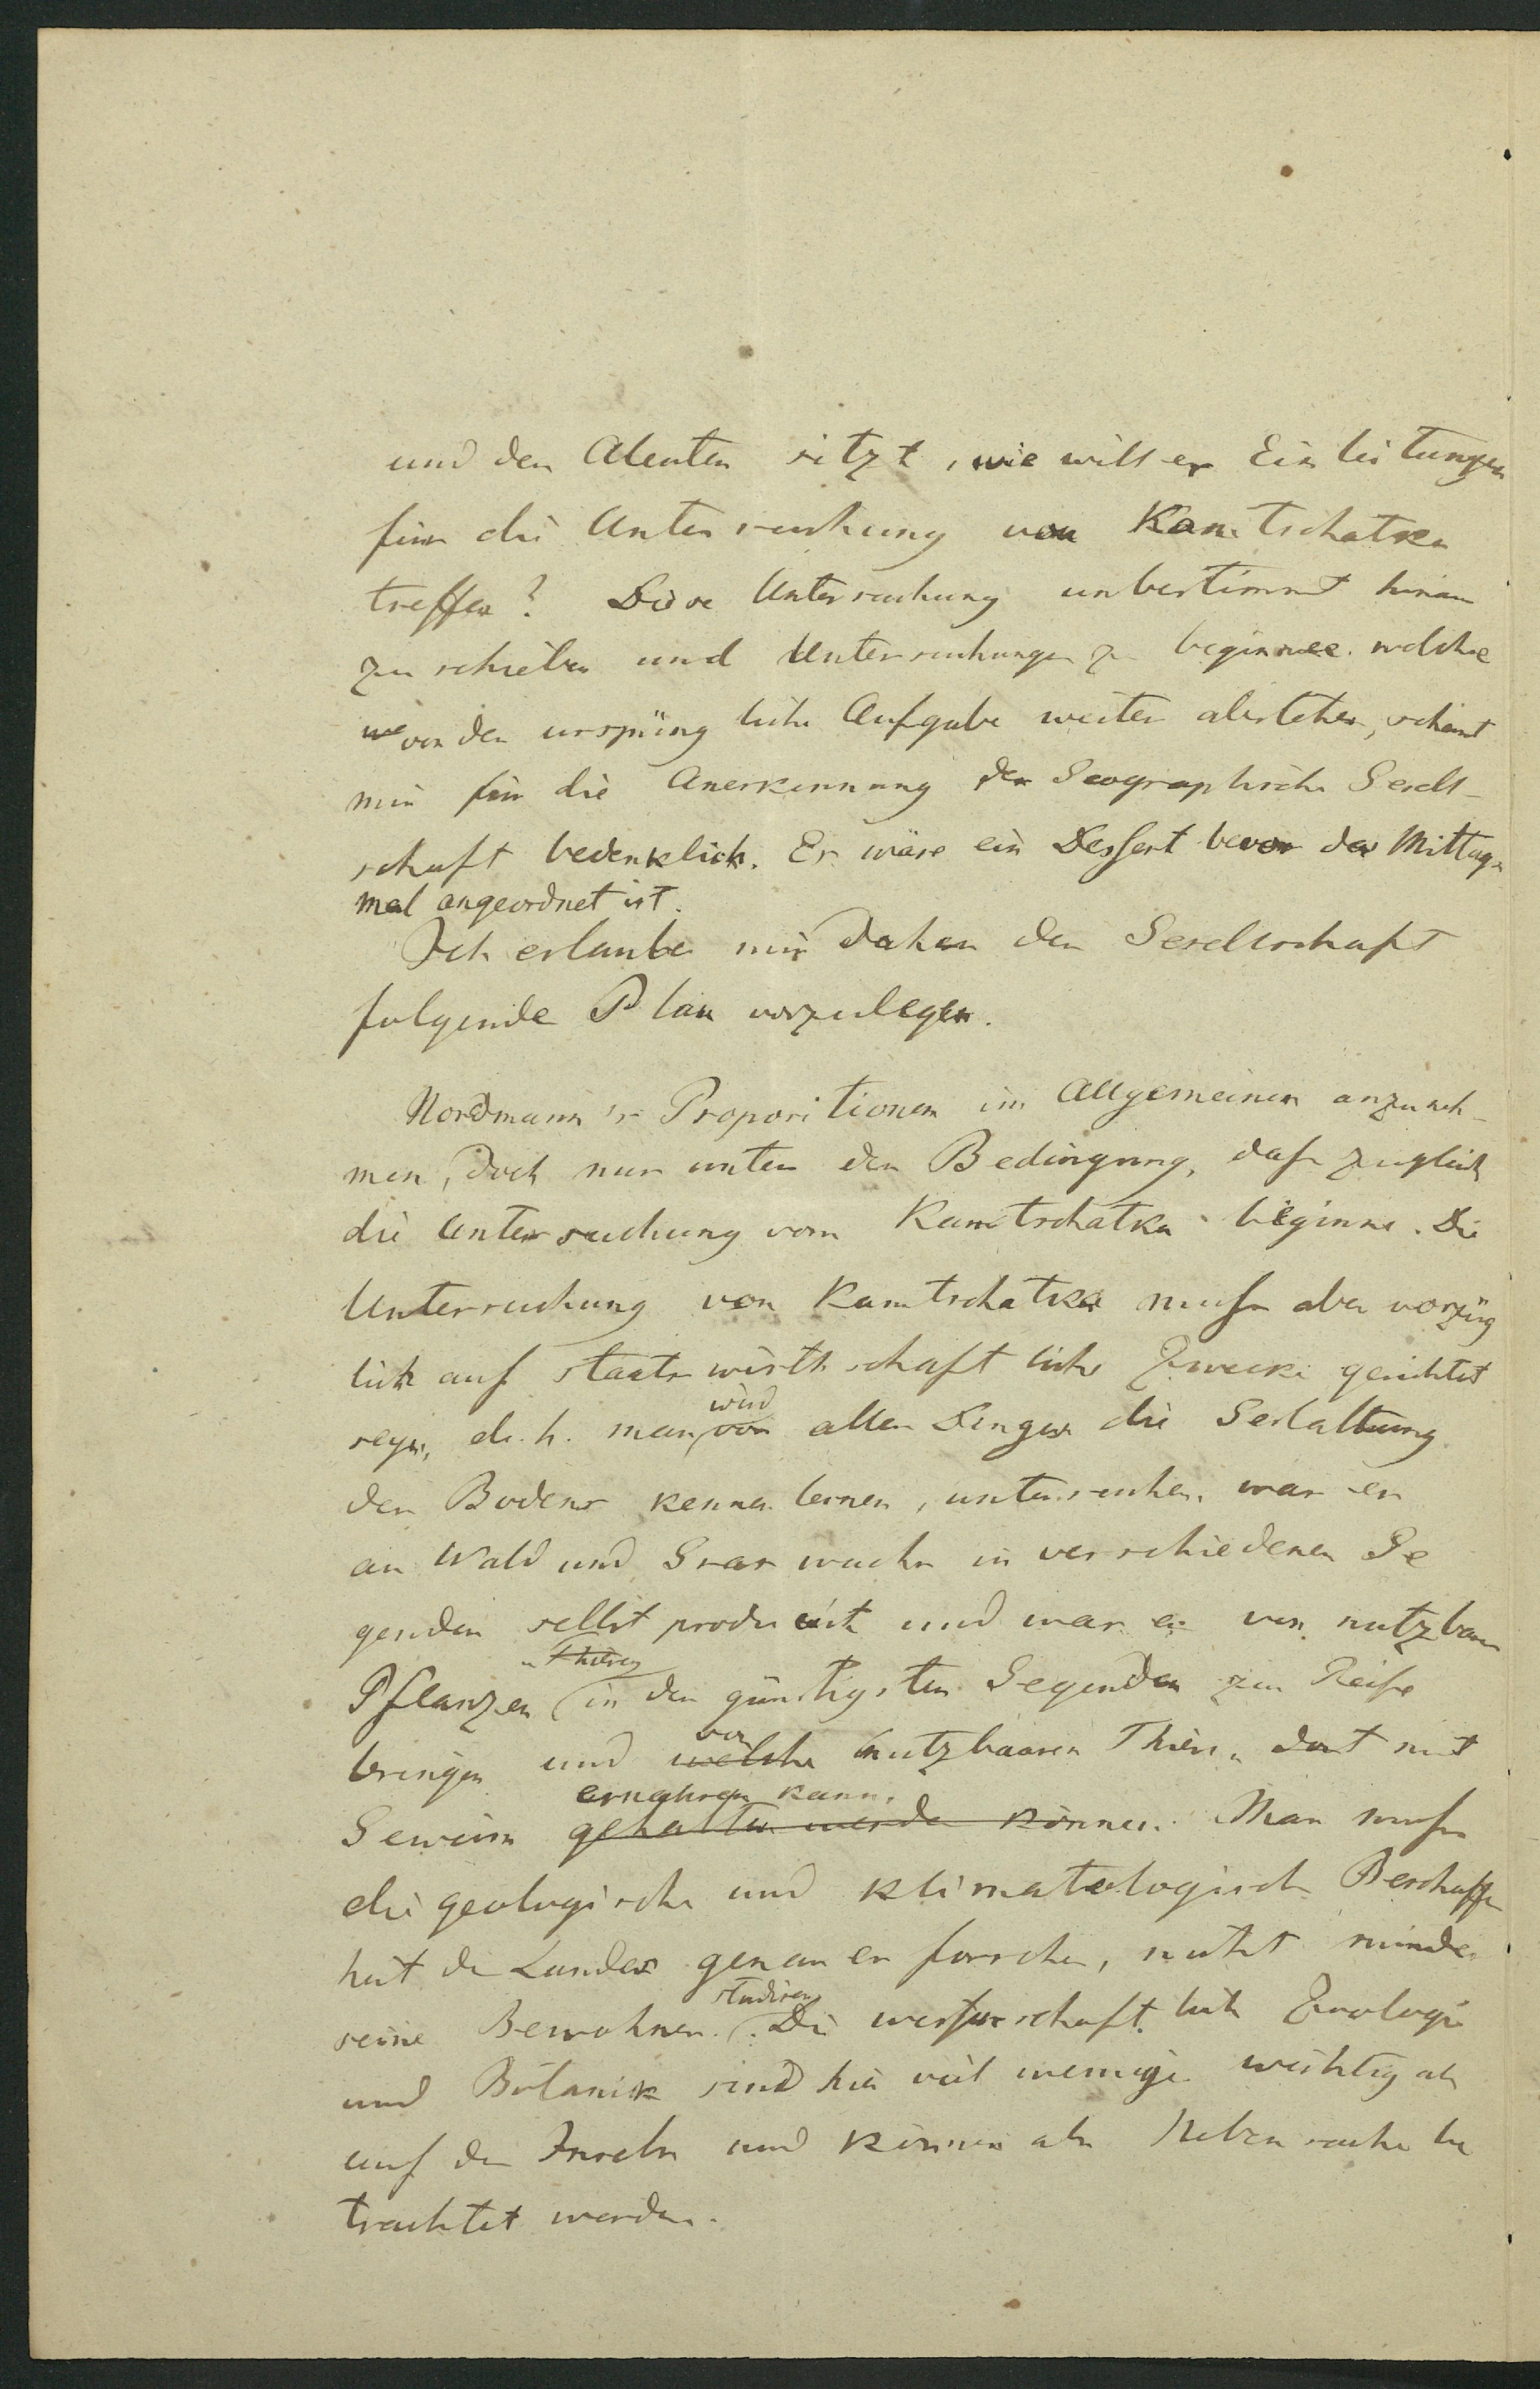 und den Aleuten sitzt, wie will er Einleitungen
für die Untersuchung von Kamtschatka
treffen? Diese Untersuchung unbestimmt hinaus
zu schieben und Untersuchungen zu beginnen welche
von der ursprünglichen Aufgabe weiter abstehen, scheint
mir für die Anerkennung der Geographischen Gesell-
schaft bedenklich. Es wäre ein Dessert bevor das Mittags
mal angeordnet ist.
Ich erlaube mir daher der Gesellschaft
folgende Plan vorzulegen.
Nordmann's Propositionen im Allgemeinen anzuneh-
men, doch nur unter der Bedingung, dass zugleich
die Untersuchung von Kamtschatka beginne. Die
Untersuchung von Kamtschatka muss aber vorzüg
lich auf staatswirthschaftliche Zwecke gerichtet
wird
seyn, d. h. man vor allen Dingen die Gestaltung
des Bodens kennen lernen, untersuchen, was er
an Wald und Graswuchs in verschiedenen Ge
genden selbst producirt und was er von nutzbaren
u Thieren
Pflanzen in den günstigsten Gegenden zur Reife
von
bringen und welche nutzbaaren Thieren dort mit
ernähren kann.
Gewinn gehalten werden können. Man muss
die geologische und klimatologische Beschaffen
heit des Landes genau erforschen, nicht minder
studiren
seine Bewohner. Die wissenschaftliche Zoologie
und Botanik sind hier viel weniger wichtig als
auf den Inseln und können als Nebensache be
trachtet werden.